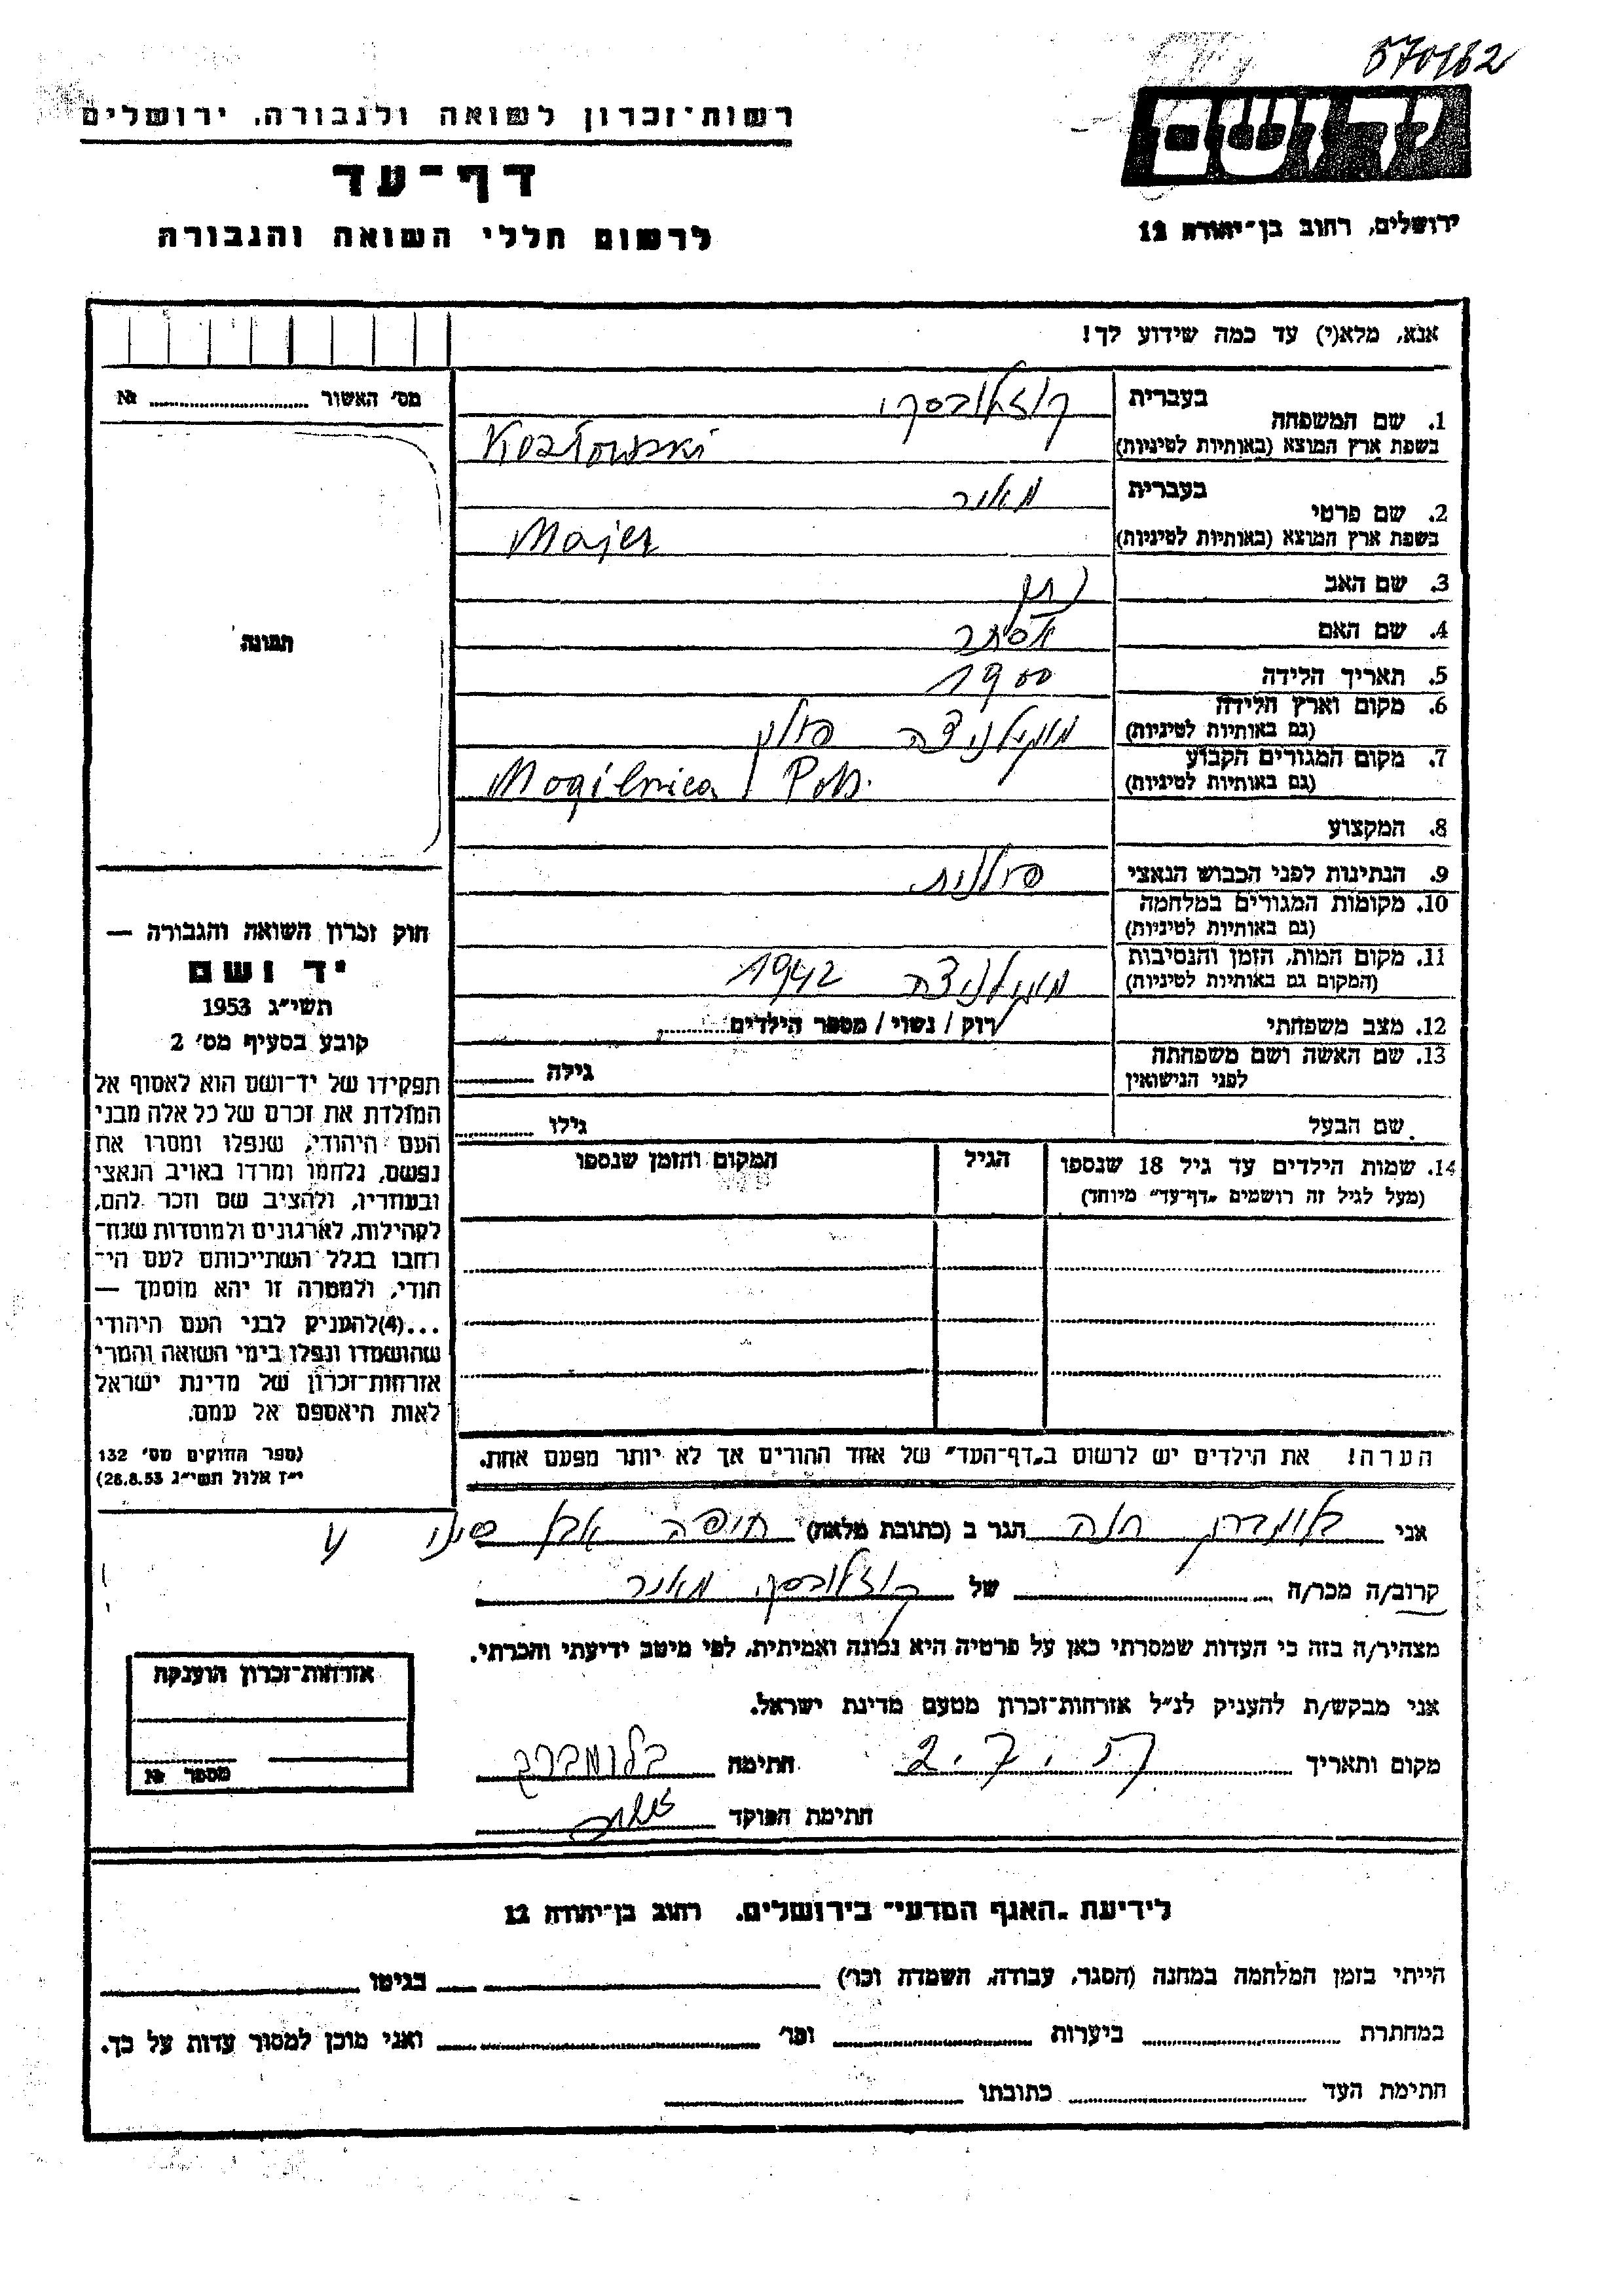 570162
רשות־זכרון לשואה ולגבורה, ירושלים
יד ושם
דף־עד
לרשום חללי השואה והגבורה
ירושלים, רחוב בן־יהודה 12
אנא, מלא(י) עד כמה שידוע לך!
מס' האשור ........ №
תמונה
1. שם המשפחה
בעברית קוזלובסקי
בשפת ארץ המוצא (באותיות לטיניות) Kozłowski
2. שם פרטי
בעברית מאיר
בשפת ארץ המוצא (באותיות לטיניות) Majer
3. שם האב נתן
4. שם האם אסתר
5. תאריך הלידה 1900
6. מקום וארץ הלידה
(גם באותיות לטיניות) מוגילניצה פולין
7. מקום המגורים הקבוע
(גם באותיות לטיניות) Mogielnica / Pol.
8. המקצוע
9. הנתינות לפני הכבוש הנאצי פולנית
10. מקומות המגורים במלחמה
(גם באותיות לטיניות)
11. מקום המות, הזמן והנסיבות
(המקום גם באותיות לטיניות) מוגילניצה 1942
12. מצב משפחתי רוק / נשוי / מספר הילדים........
13. שם האשה ושם משפחתה
לפני הנישואין גילה ........
שם הבעל גילו ........
14. שמות הילדים עד גיל 18 שנספו
(מעל לגיל זה רושמים „דף־עד" מיוחד)
הגיל
המקום והזמן שנספו
חוק זכרון השואה והגבורה —
יד ושם
תשי"ג 1953
קובע בסעיף מס' 2
תפקידו של יד־ושם הוא לאסוף אל
המולדת את זכרם של כל אלה מבני
העם היהודי, שנפלו ומסרו את
נפשם, נלחמו ומרדו באויב הנאצי
ובעוזריו, ולהציב שם וזכר להם,
לקהילות, לארגונים ולמוסדות שנח־
רחבו בגלל השתייכותם לעם הי־
חודי, ולמטרה זו יהא מוסמך —
...(4)להעניק לבני העם היהודי
שהושמדו ונפלו בימי השואה והמרי
אזרחות־זכרון של מדינת ישראל
לאות היאספם אל עמם.
(ספר החוקים מס' 132
י"ז אלול תשי"ג 28.8.53)
הערה! את הילדים יש לרשום ב„דף־העד" של אחד ההורים אך לא יותר מפעם אחת.
אני חנה הגר ב (כתובת מלאה) חיפה אבא
קרוב/ה מכר/ה ........ של קוזלובסקי מאיר
מצהיר/ה בזה כי העדות שמסרתי כאן על פרטיה היא נכונה ואמיתית, לפי מיטב ידיעתי והכרתי.
אני מבקש/ת להעניק לנ"ל אזרחות־זכרון מטעם מדינת ישראל.
מקום ותאריך 2.7.57 חתימה בלומברג
חתימת הפוקד
אזרחות־זכרון הוענקה
מספר №
לידיעת „האגף המדעי" בירושלים, רחוב בן־יהודה 12
הייתי בזמן המלחמה במחנה (הסגר, עבודה, השמדה וכו') ________ בגיטו ________
במחתרת ........ ביערות ........ וכו' ........ ואני מוכן למסור עדות על כך.
חתימת העד ........ כתובתו ........